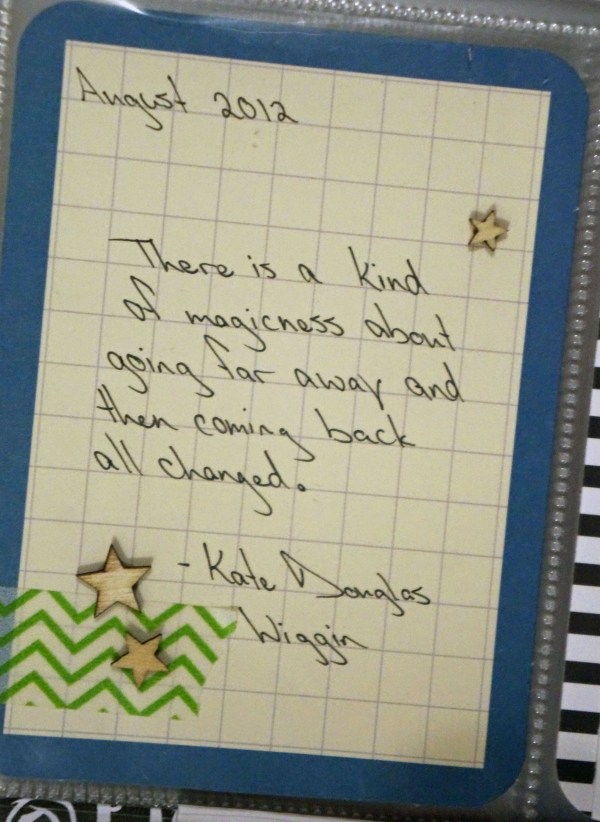 August 2012
There is a kind
of magicness about
going far away and
then coming back
all changed.
- Kate Douglas
Wiggin